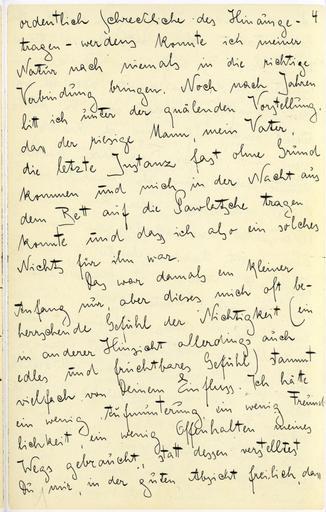 4
ordentlich Schreckliche des Hinausge-
tragen-werdens konnte ich meiner
Natur nach niemals in die richtige
Verbindung bringen. Noch nach Jahren
litt ich unter der quälenden Vorstellung,
dass der riesige Mann, mein Vater,
die letzte Instanz fast ohne Grund
kommen und mich in der Nacht aus
dem Bett auf die Pawlatsche tragen
konnte und dass ich also ein solches
Nichts für ihn war.
Das war damals ein kleiner
Anfang nur, aber dieses mich oft be-
herrschende Gefühl der Nichtigkeit (ein
in anderer Hinsicht allerdings auch
edles und fruchtbares Gefühl) stammt
vielfach von Deinem Einfluss. Ich hätte
ein wenig Aufmunterung, ein wenig Freund-
lichkeit, ein wenig Offenhalten meines
Wegs gebraucht, statt dessen verstelltest
Du mir, in der guten Absicht freilich, dass